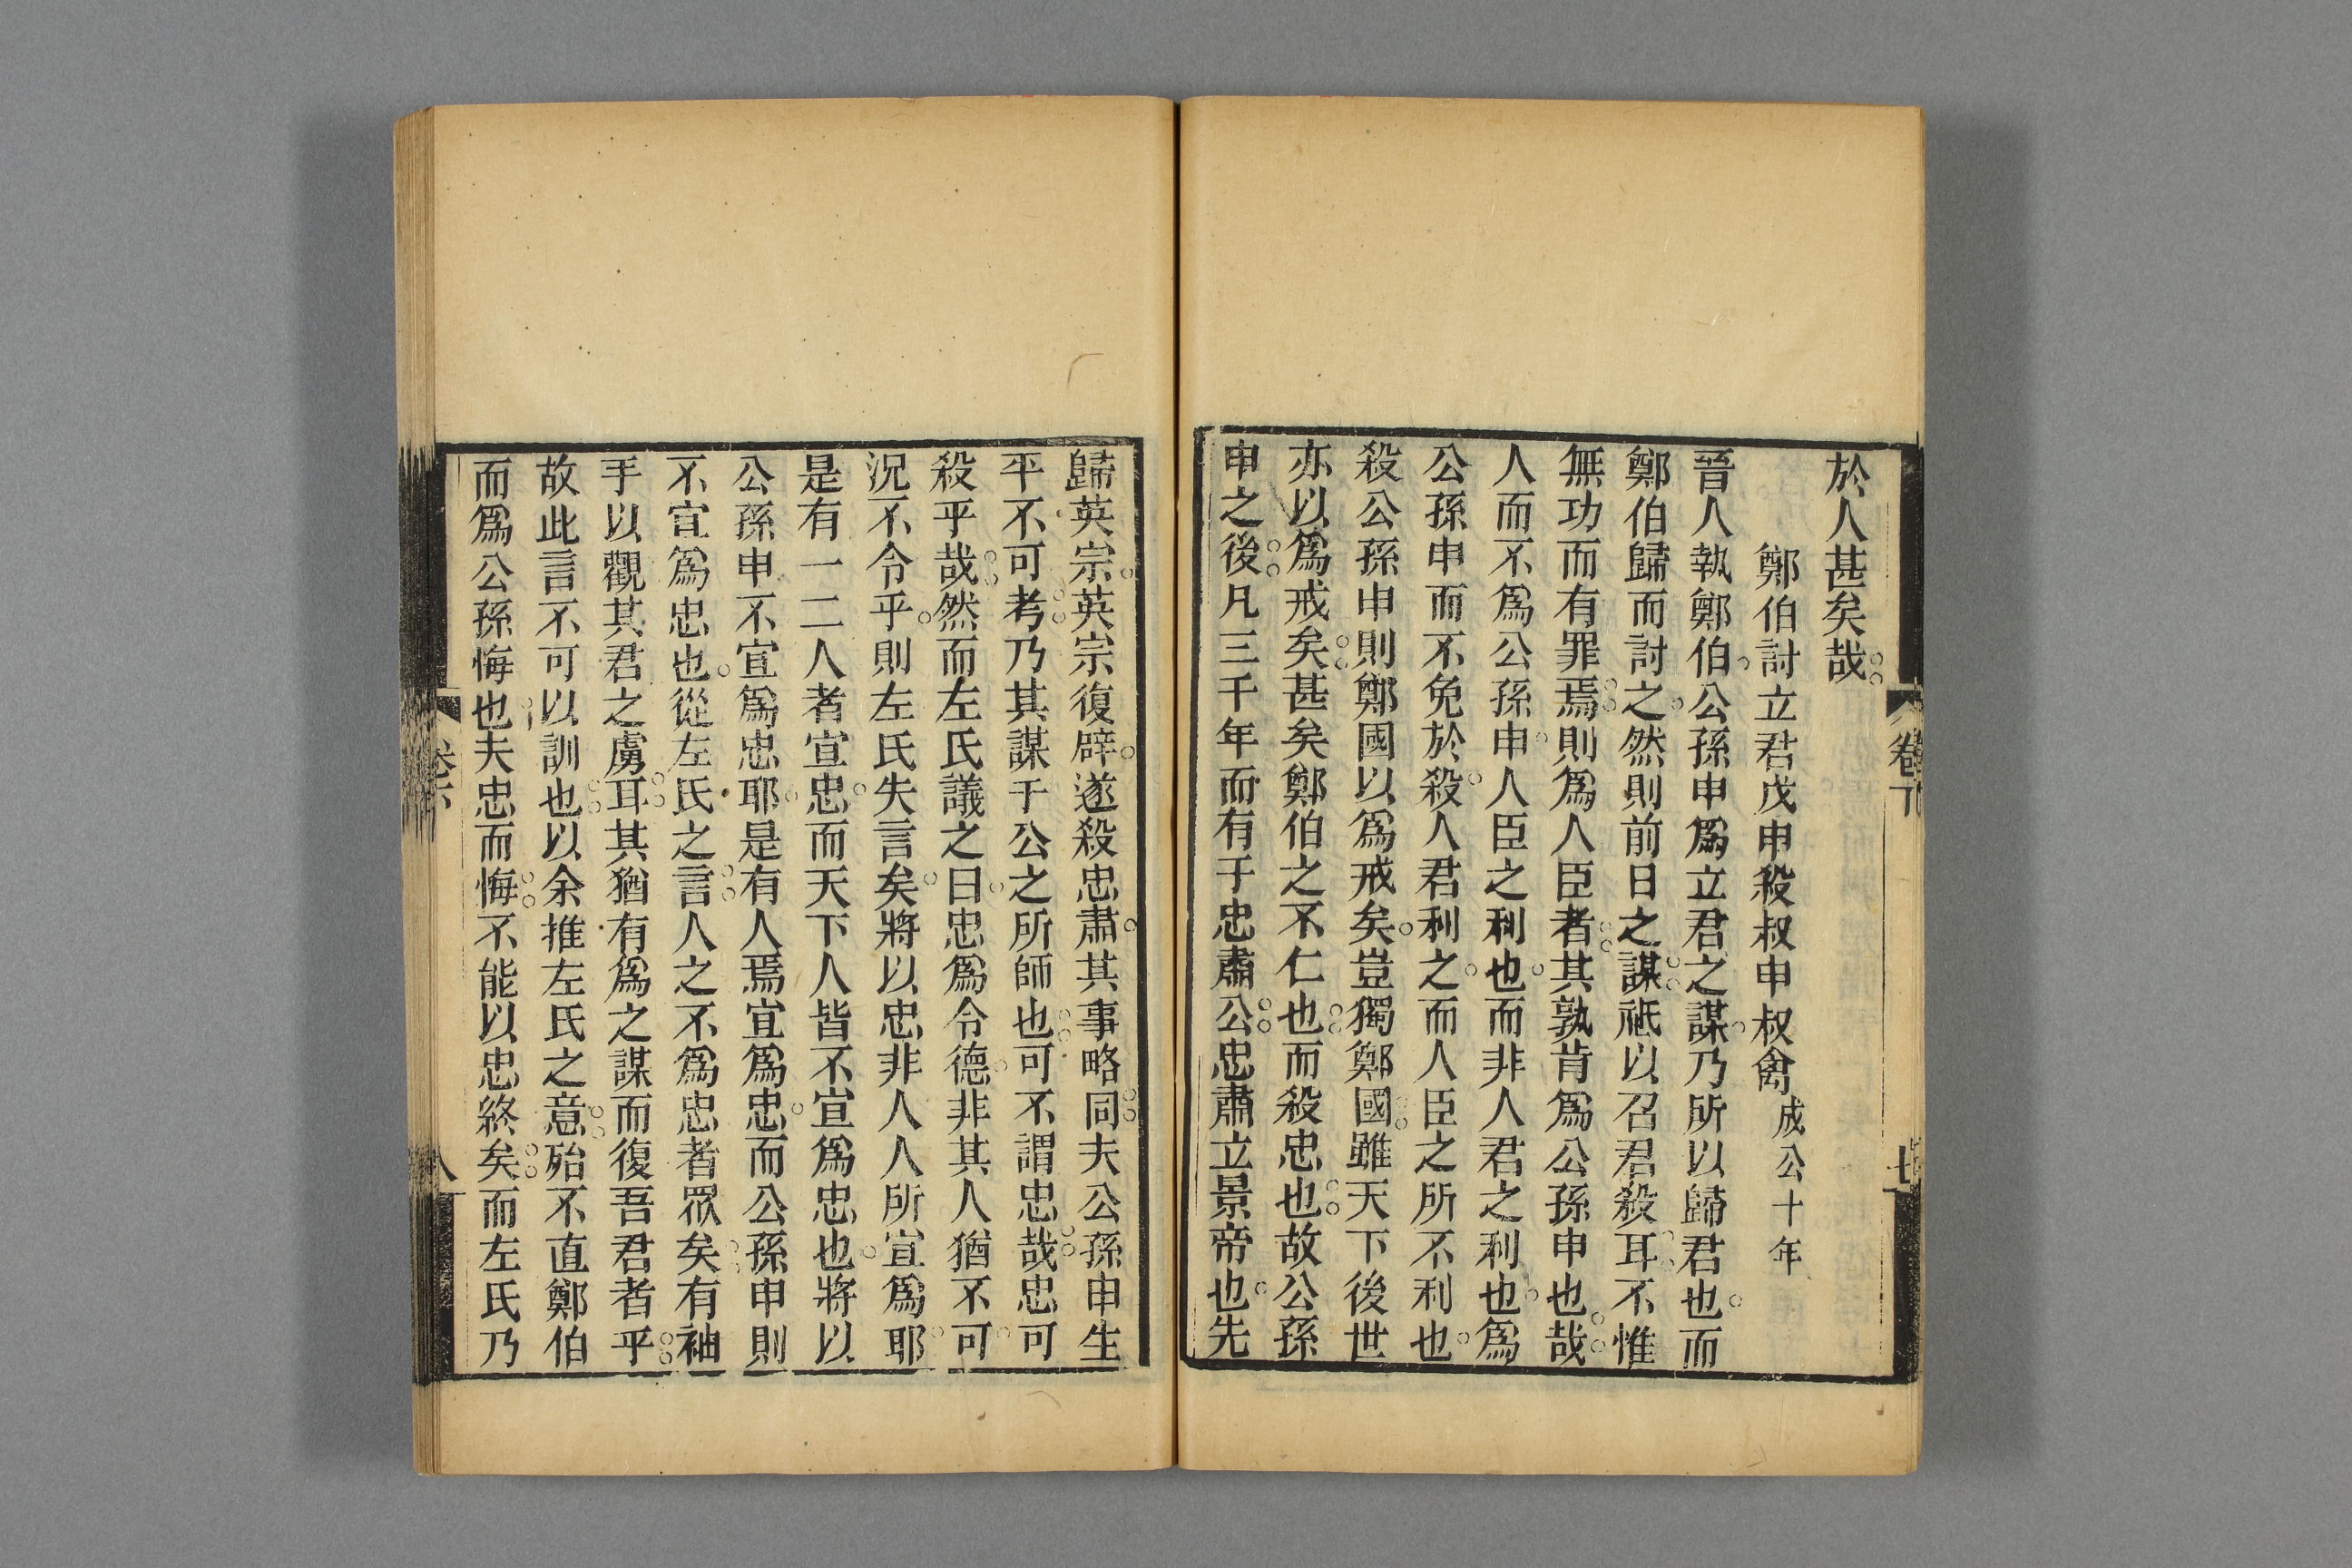 於人甚矣哉
鄭伯討立君戊申殺叔申叔禽成公十年
晉人執鄭伯公孫申爲立君之謀乃所以歸君也而
鄭伯歸而討之然則前日之謀祗以召君殺耳不惟
無功而有罪焉則爲人臣者其孰肯爲公孫申也哉
人而不爲公孫申人臣之利也而非人君之利也爲
公孫申而不免於殺人君利之而人臣之所不利也
殺公孫申則鄭國以爲戒矣豈獨鄭國雖天下後世
亦以爲戒矣甚矣鄭伯之不仁也而殺忠也故公孫
申之後凡三千年而有于忠肅公忠肅立景帝也先
卷下
七
歸英宗英宗復辟遂殺忠肅其事略同夫公孫申生
平不可考乃其謀于公之所師也可不謂忠哉忠可
殺乎哉然而左氏議之曰忠爲令德非其人猶不可
況不令乎則左氏失言矣將以忠非人人所宜爲耶
是有一二人者宜忠而天下人皆不宜爲忠也將以
公孫申不宜爲忠耶是有人焉宜爲忠而公孫申則
不宜爲忠也從左氏之言人之不爲忠者眾矣有袖
手以觀其君之虜耳其猶有爲之謀而復吾君者乎
故此言不可以訓也以余推左氏之意殆不直鄭伯
而爲公孫悔也夫忠而悔不能以忠終矣而左氏乃
八